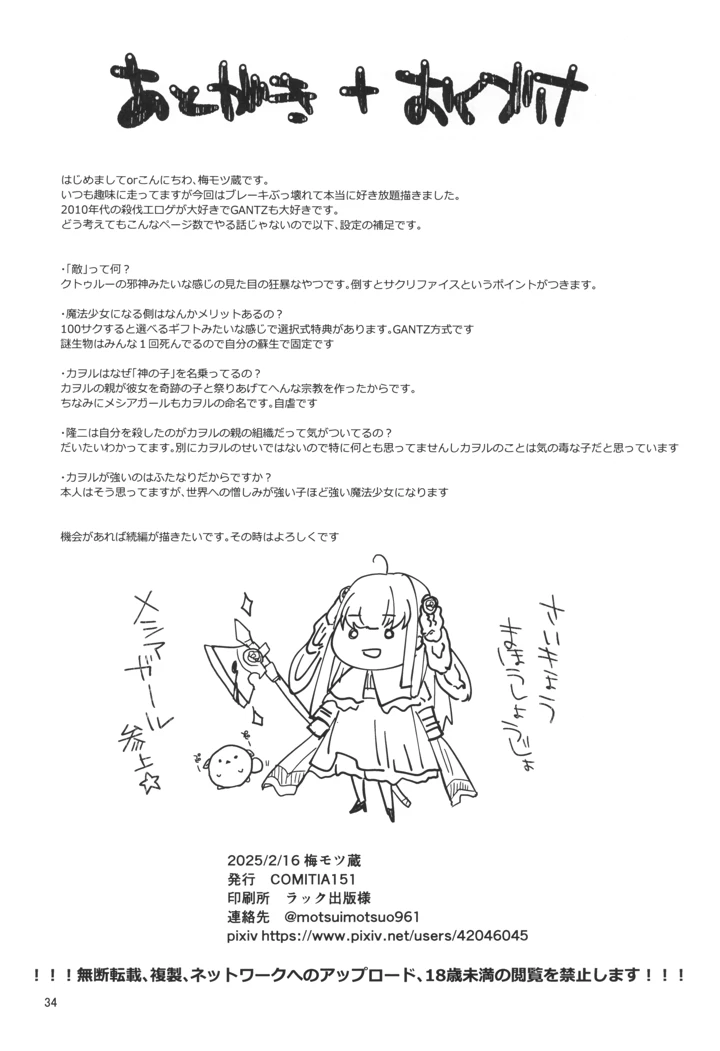 あとがき + おくづけ
はじめましてorこんにちわ、梅モツ蔵です。
いつも趣味に走ってますが今回はブレーキぶっ壊れて本当に好き放題描きました。
2010年代の殺伐エロゲが大好きでGANTZも大好きです。
どう考えてもこんなページ数でやる話じゃないので以下、設定の補足です。
・「敵」って何？
クトゥルーの邪神みたいな感じの見た目の狂暴なやつです。倒すとサクリファイスというポイントがつきます。
・魔法少女になる側はなんかメリットあるの？
100サクすると選べるギフトみたいな感じで選択式特典があります。GANTZ方式です
謎生物はみんな１回死んでるので自分の蘇生で固定です
・カヲルはなぜ「神の子」を名乗ってるの？
カヲルの親が彼女を奇跡の子と祭りあげてへんな宗教を作ったからです。
ちなみにメシアガールもカヲルの命名です。自虐です
・隆二は自分を殺したのがカヲルの親の組織だって気がついてるの？
だいたいわかってます。別にカヲルのせいではないので特に何とも思ってませんしカヲルのことは気の毒な子だと思っています
・カヲルが強いのはふたなりだからですか？
本人はそう思ってますが、世界への憎しみが強い子ほど強い魔法少女になります
機会があれば続編が描きたいです。その時はよろしくです
さいきょう
まほうしょうじょ
メシアガール
参上☆
2025/2/16 梅モツ蔵
発行　COMITIA151
印刷所　ラック出版様
連絡先　@motsuimotsuo961
pixiv https://www.pixiv.net/users/42046045
！！！無断転載、複製、ネットワークへのアップロード、18歳未満の閲覧を禁止します！！！
34